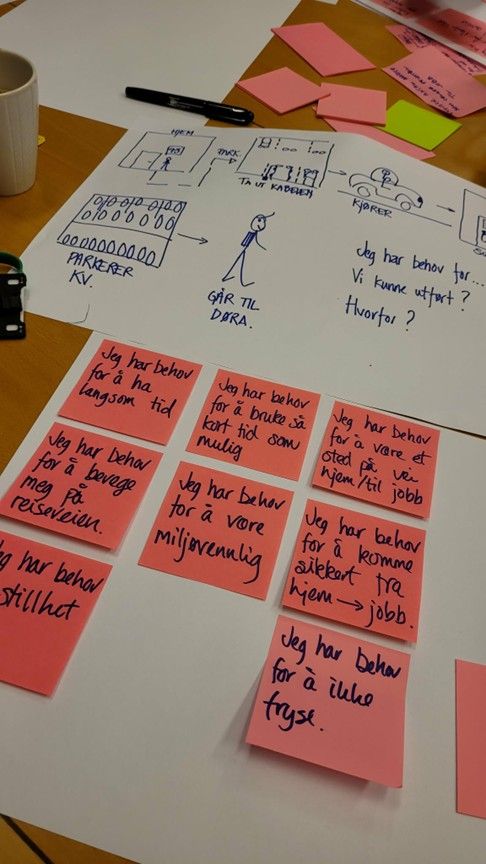 HJEM
PARK
TA UT KABELEN
KJØRER
PARKERER
KV.
GÅR TIL
DØRA.
Jeg har behov for...
Vi kunne utført?
Hvorfor?
Jeg har behov
for å ha
langsom tid
Jeg har behov
for å bruke så
kort tid som
mulig
Jeg har behov
for å være et
sted på vei
hjem/til jobb
Jeg har behov
for å bevege
meg på
reiseveien.
Jeg har behov
for å være
miljøvennlig
Jeg har behov
for å komme
sikkert fra
hjem → jobb.
g har behov
stillhet
Jeg har behov
for å ikke
fryse.